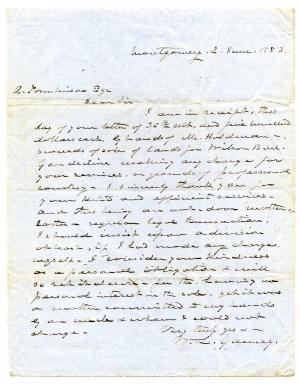 Montgomery. 2. June. 1853.
A. Tomkinson Esqr
Dear Sir
I am in receipt, this
day of your letter of 30th Ult, and five hundred
dollars cash, by hands of Mr. Holdman -
proceeds of sale of lands for Wilson Bird.
You decline making any charge for
your services, on grounds of professional
courtesy - I sincerely thank you for
your kind and efficient services -
and this being an out-door matter -
rather a regular transaction,
I should insist upon a division
at least, if I had made any charges
myself - I consider your kindness
as a personal obligation & will
so reciprocate - for tho having no
personal interest in the sale, yet it was
a matter committed to my hands
by an uncle & whom I could not
charge -
Very truly yrs &